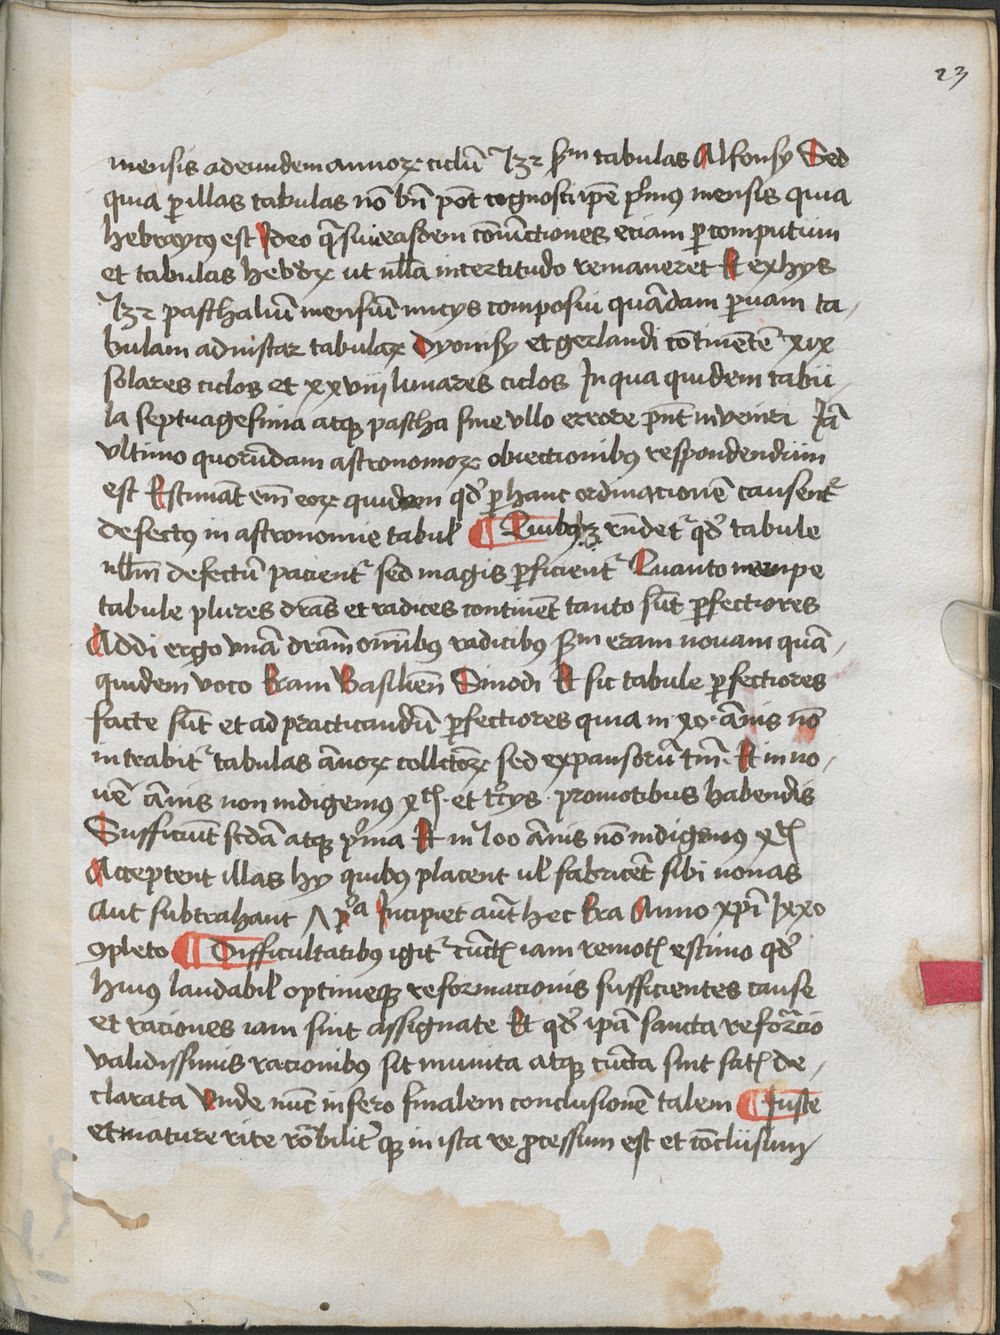 23
mensis ad eundem annoꝝ ciclū 532 sm tabulas Alfonsy Sed
quia ꝑ illas tabulas nō bn̄ pōt cognosci ipē pͥmus mensis quia
hebraycus est Ideo q̄siui easdem cōiūctiones eciam ꝑ computum
et tabulas hebreoꝝ ut nll̄a incertitudo remaneret Et ex hys
532 paschaliū mensiū inicys composui quādam ꝑuam ta-
bulam ad instar tabulaꝝ Dyonisy et gerlandi cōtinentē xix
solares ciclos et xxviii lunares ciclos In qua quidem tabu-
la septuagesima atqꝫ pascha sine vllo errore pn̄t inveniri Iā
vltimo quorūdam astronomoꝝ obiectionibus respondendum
est Estimāt em̄ eoꝝ quidem qđ ꝑ hanc ordinacionē causentͬ
defectus in astronomie tabul̕ ¶ Quibus rn̄detͬ qđ tabule
nllm̄ defectū pacientͬ sed magis ꝑficientͬ Quanto nempe
tabule plures dr̄as et radices continēt tanto sūt ꝑfectiores
Addi ergo vnā dr̄am om̄ibus radicibus sm eram nouam quā-
quidem voco Eram Basilien̄ Sinodi Et sic tabule ꝑfectiores
facte sūt et ad practicandū ꝑfectiores quia in 90 ānis nō
intrabitͬ tabulas ānoꝝ collectoꝝ sed expansorū tm̄ Et in no-
uē ānis non indigemus et tercys promotibus habendis
Sufficiūt scdā atqꝫ pͥma Et in 100 ānis nō indigemus
Acceptent illas hy quibus placent ul̕ fabricēt sibi nouas
Aut subtrahant Incipiet aūt hec Era Anno xp̄i
ꝯpleto ¶ Difficultatibus igitͬ cūctꝭ iam remotꝭ estimo qđ
huius laudabil̕ optimeqꝫ reformacionis sufficientes cause
et raciones iam sint assignate Et qđ ipā sancta reformacio
validissimis racionibus sit munita atqꝫ cūcta sint satꝭ de-
clarata Unde nūc infero finalem conclusionē talem ¶ Iuste
et mature rite rōnabiliterqꝫ in ista re ꝓcessum est et cōclusum